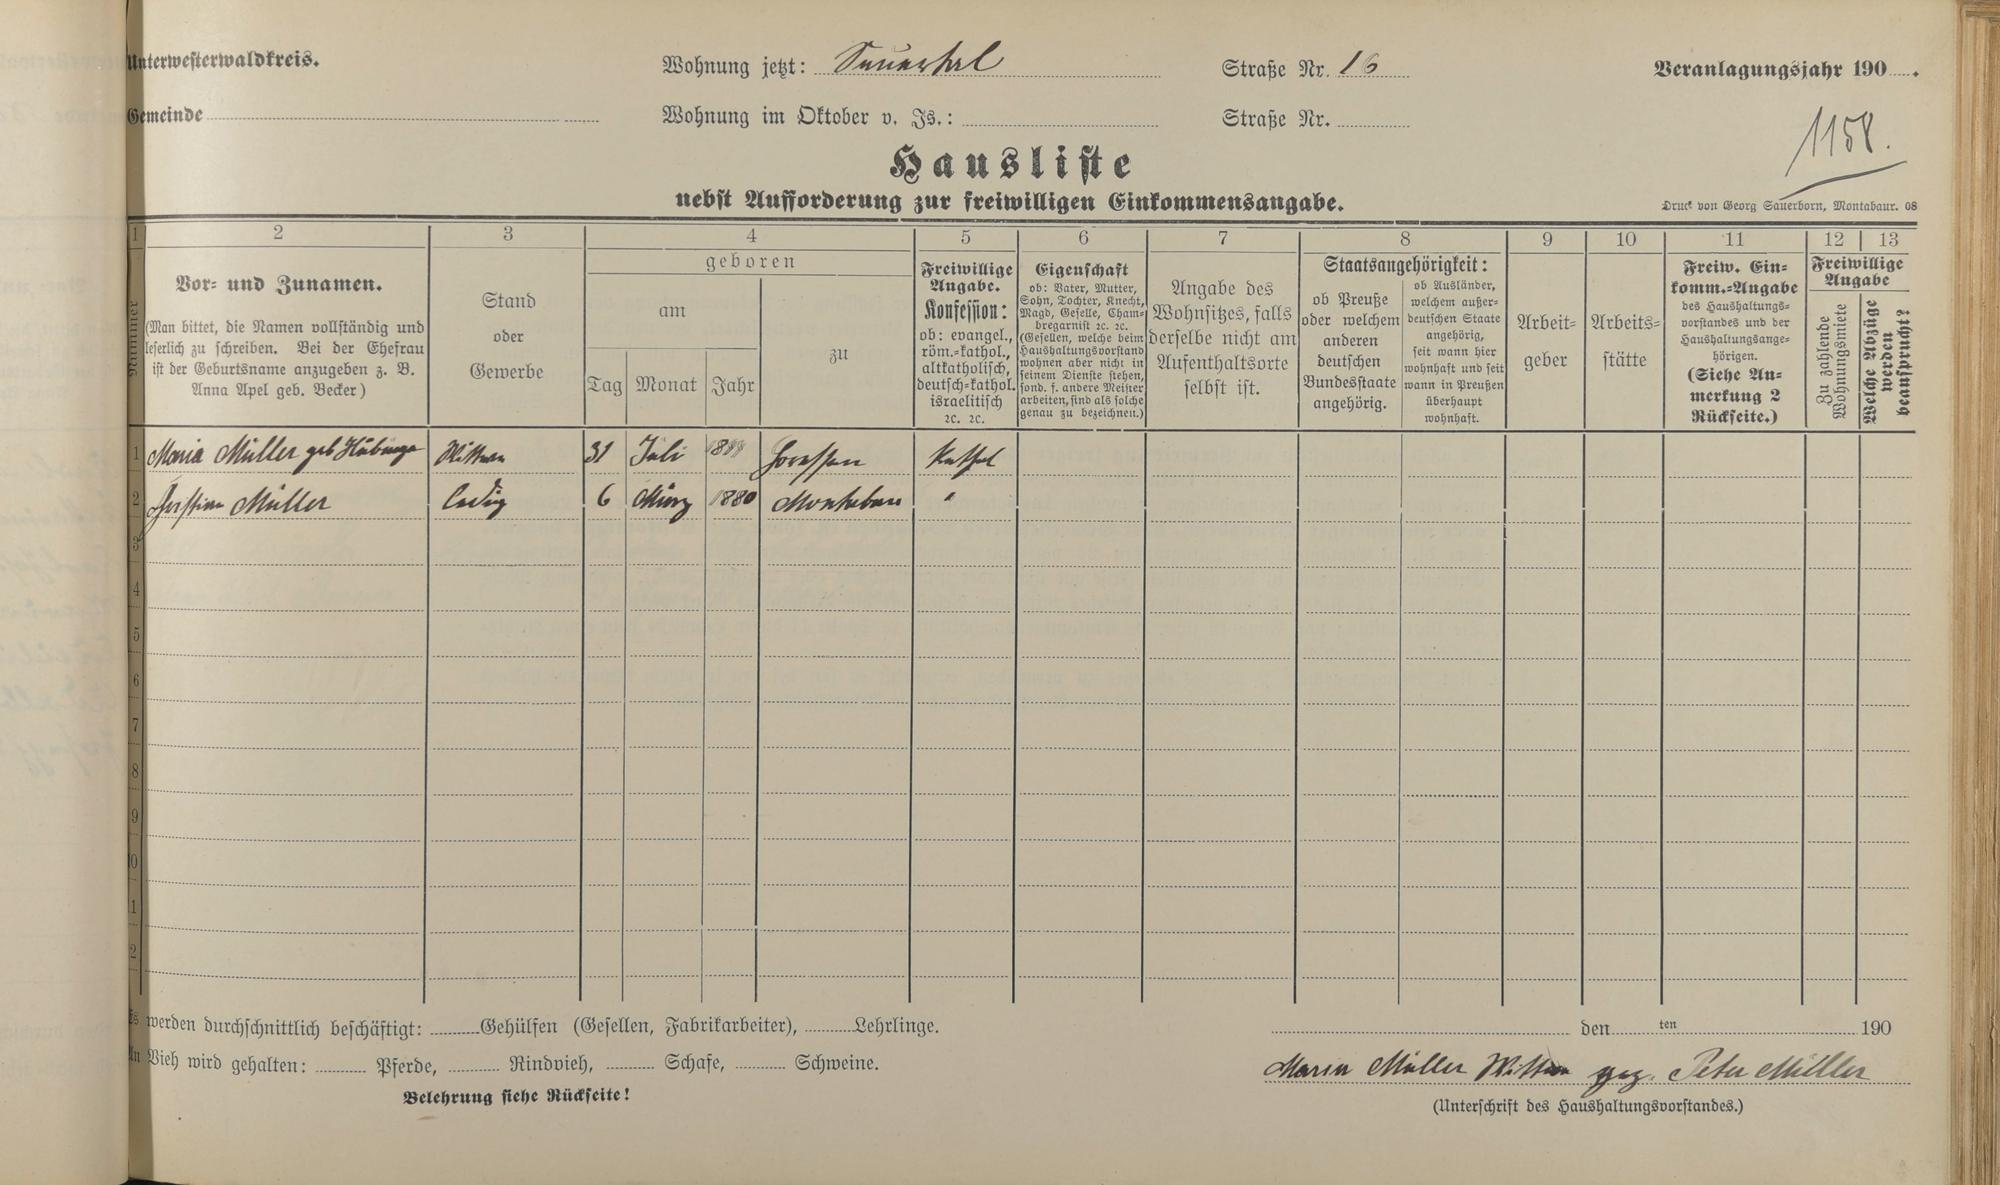 Unterwesterwaldkreis.
Wohnung jetzt: Sauertal Straße Nr. 16
Veranlagungsjahr 190 .
Gemeinde
Wohnung im Oktober v. Js.: Straße Nr.
1158.
Hausliste
nebst Aufforderung zur freiwilligen Einkommensangabe.
Druck von Georg Sauerborn, Montabaur. 08
1 2 3 4 5 6 7 8 9 10 11 12 13
Nummer
Vor- und Zunamen.
(Man bittet, die Namen vollständig und
leserlich zu schreiben. Bei der Ehefrau
ist der Geburtsname anzugeben z. B.
Anna Apel geb. Becker)
Stand
oder
Gewerbe
geboren
am
Tag Monat Jahr
zu
Freiwillige
Angabe.
Konfession:
ob: evangel.,
röm.-kathol.,
altkatholisch,
deutsch-kathol.
israelitisch
ꝛc. ꝛc.
Eigenschaft
ob: Vater, Mutter,
Sohn, Tochter, Knecht,
Magd, Geselle, Cham-
bregarnist ꝛc. ꝛc.
(Gesellen, welche beim
Haushaltungsvorstand
wohnen aber nicht in
seinem Dienste stehen,
sond. f. andere Meister
arbeiten, sind als solche
genau zu bezeichnen.)
Angabe des
Wohnsitzes, falls
derselbe nicht am
Aufenthaltsorte
selbst ist.
Staatsangehörigkeit:
ob Preuße
oder welchem
anderen
deutschen
Bundesstaate
angehörig.
ob Ausländer,
welchem außer-
deutschen Staate
angehörig,
seit wann hier
wohnhaft und seit
wann in Preußen
überhaupt
wohnhaft.
Arbeit-
geber
Arbeits-
stätte
Freiw. Ein-
komm.-Angabe
des Haushaltungs-
vorstandes und der
Haushaltungsange-
hörigen.
(Siehe An-
merkung 2
Rückseite.)
Freiwillige
Angabe
Zu zahlende
Wohnungsmiete
Welche Abzüge
werden
beansprucht?
1 Maria Müller geb Hübinger Wittwe 31 Juli Kathol
2 Christian Müller ledig 6 März 1880 Montabaur "
3
4
5
6
7
8
9
10
1
2
Es werden durchschnittlich beschäftigt: Gehülfen (Gesellen, Fabrikarbeiter), Lehrlinge.
den ten 190
An Vieh wird gehalten: Pferde, Rindvieh, Schafe, Schweine.
Maria Müller Wittwe gez. Peter Müller
Belehrung siehe Rückseite!
(Unterschrift des Haushaltungsvorstandes.)